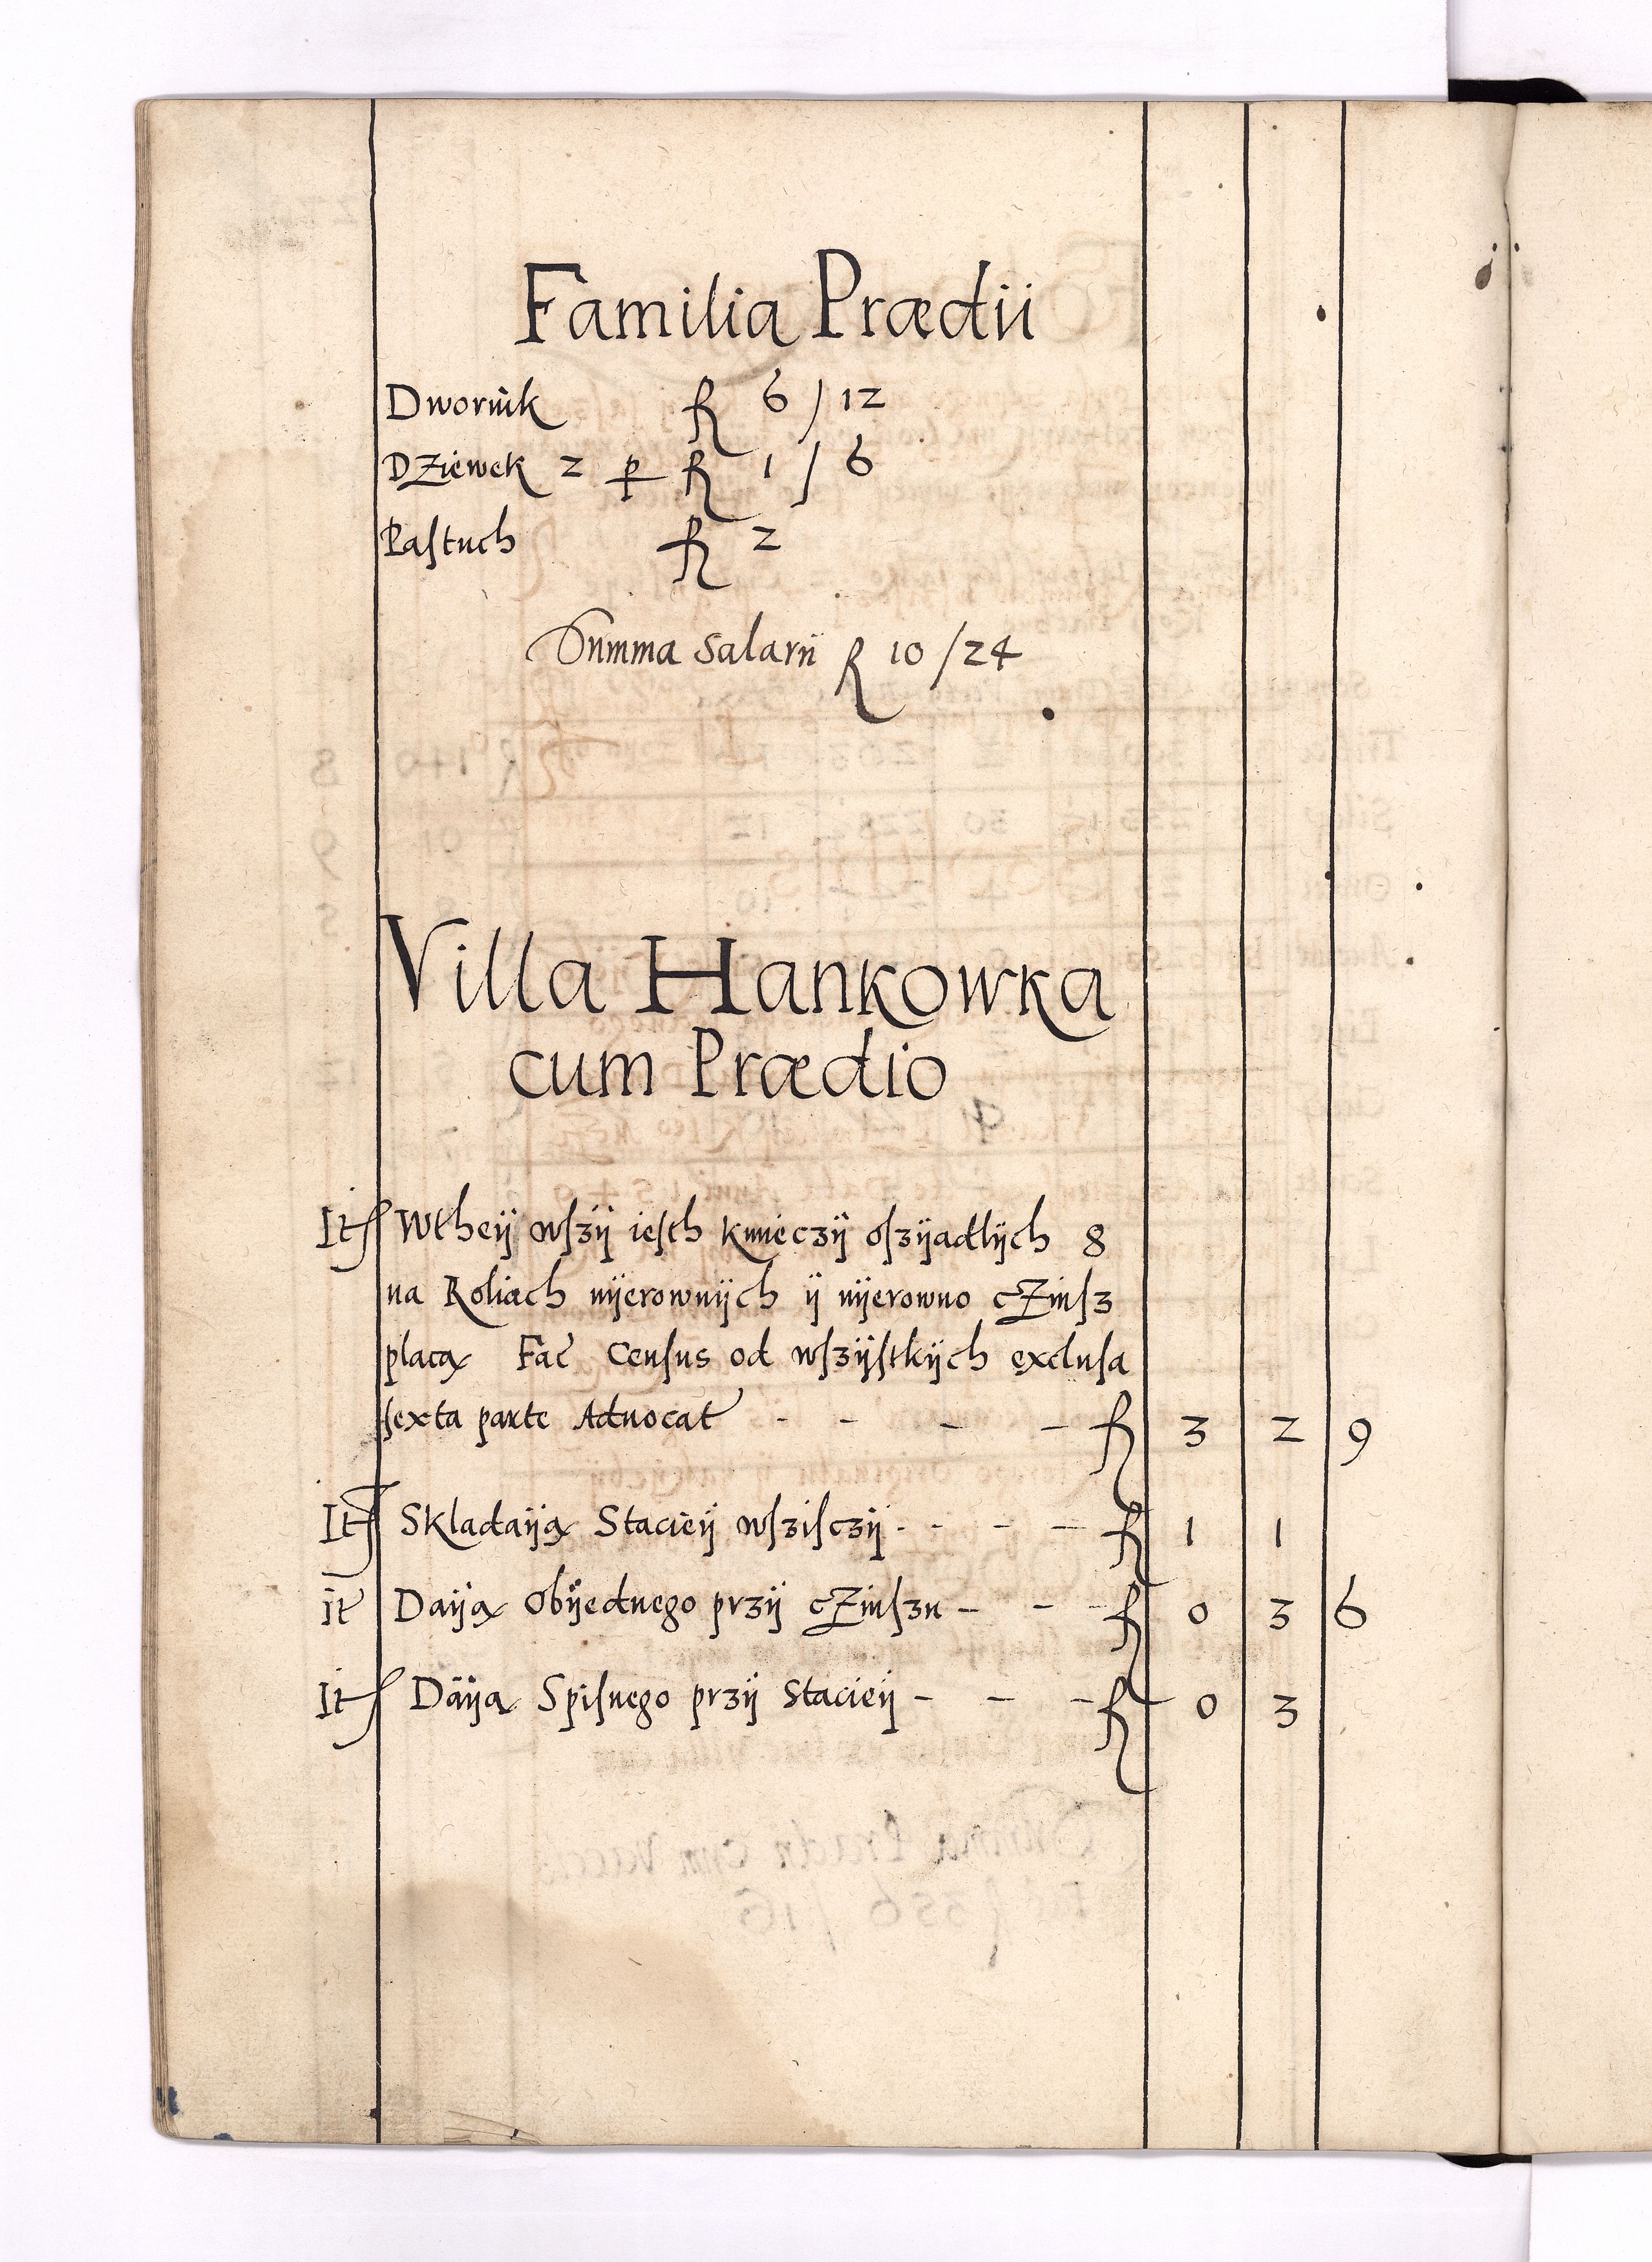 Familia Prædii
Dwornik fl 6 / 12
Dziewek 2 p fl 1 / 6
Pastuch fl 2
Summa Salarii fl 10 / 24
Villa Hankowka
cum Prædio
Itm Wtheÿ wszÿ iesth kmieczÿ oszÿadlÿch 8
na Roliach nÿerownÿch ÿ nÿerowno cZinsz
placą Fac Census od wszÿstkÿch exclusa
sexta parte Aduocat - - - - fl 3 2 9
Itm Skladaÿą Stacieÿ wszisczÿ - - - - fl 1 1
it Daÿą Obÿednego przÿ cZinszu - - - fl 0 3 6
Itm Daÿą Spisnego przÿ Stacieÿ - - - fl 0 3